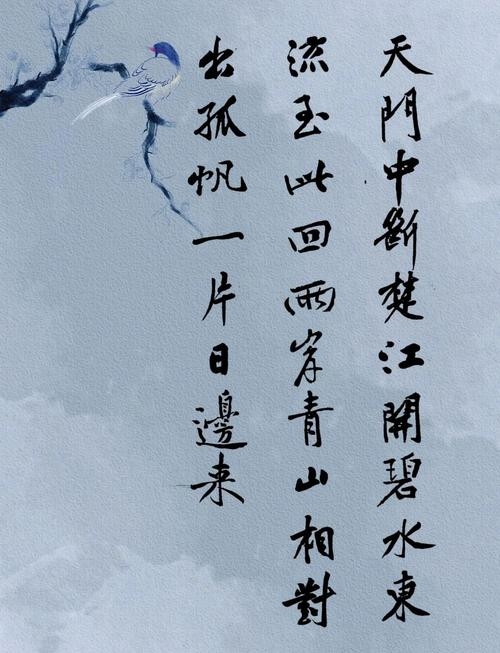 天門中斷楚江開碧水東
流至此回兩岸青山相對
出孤帆一片日邊来